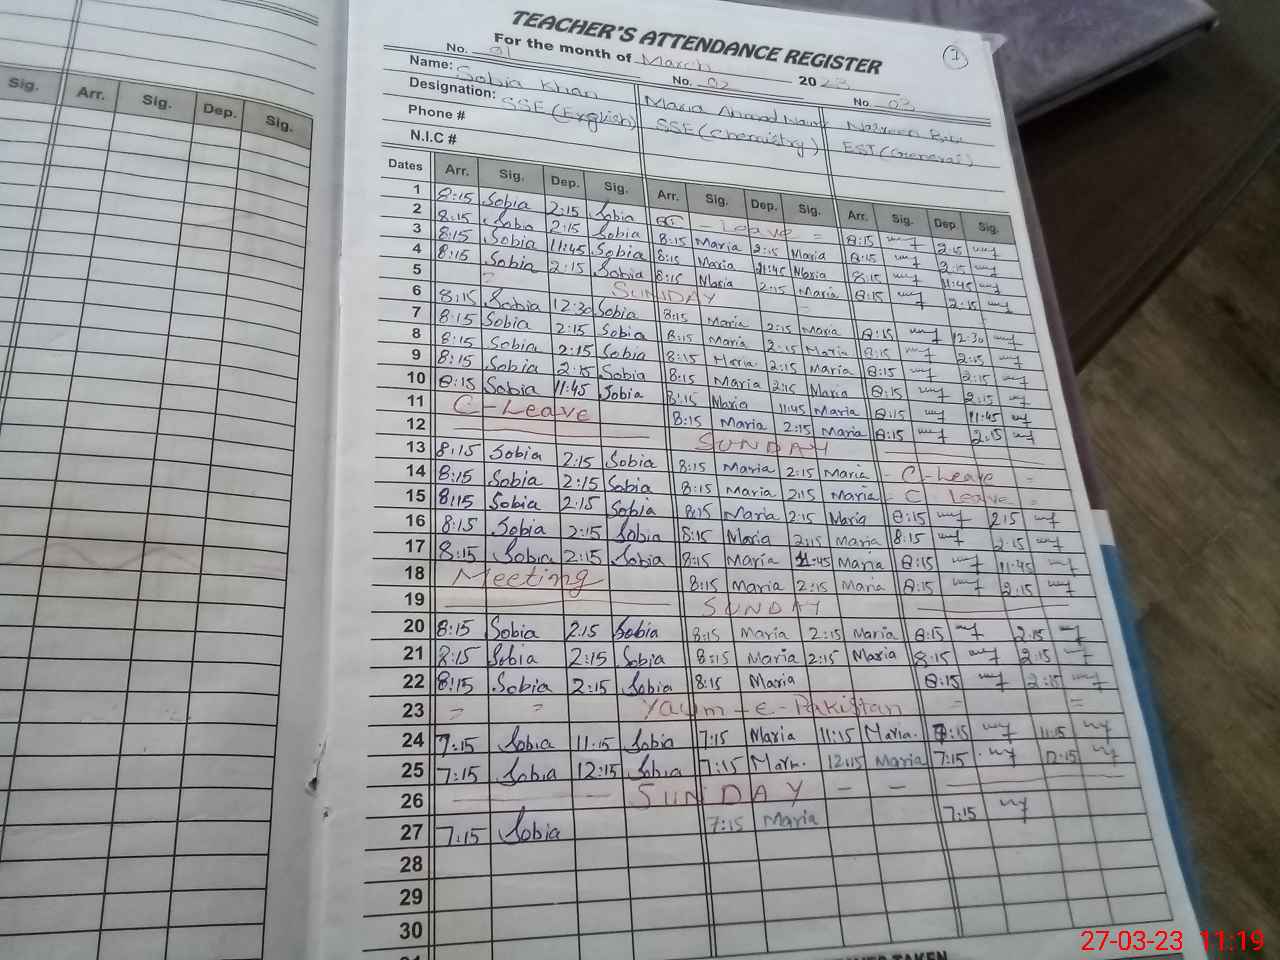 TEACHER'S ATTENDANCE REGISTER 1
For the month of March 2023
No. 01 No. 02 No. 03
Name: Sobia Khan Maria Ahmad
Designation: SSE (English) SSE (Chemistry) EST (General)
Phone #
N.I.C #
Sig. Arr. Sig. Dep. Sig.
Dates Arr. Sig. Dep. Sig. Arr. Sig. Dep. Sig. Arr. Sig. Dep. Sig.
1 8:15 Sobia 2:15 Sobia - Leave = 8:15 2:15
2 8:15 Sobia 2:15 Sobia 8:15 Maria 2:15 Maria 8:15 2:15
3 8:15 Sobia 11:45 Sobia 8:15 Maria 11:45 Maria 8:15 11:45
4 8:15 Sobia 2:15 Sobia 8:15 Maria 2:15 Maria 8:15 2:15
5 SUNDAY
6 8:15 Sobia 12:30 Sobia 8:15 Maria 2:15 Maria 8:15 12:30
7 8:15 Sobia 2:15 Sobia 8:15 Maria 2:15 Maria 8:15 2:15
8 8:15 Sobia 2:15 Sobia 8:15 Maria 2:15 Maria 8:15 2:15
9 8:15 Sobia 2:15 Sobia 8:15 Maria 2:15 Maria 8:15 2:15
10 8:15 Sobia 11:45 Sobia 8:15 Maria 11:45 Maria 8:15 11:45
11 C-Leave 8:15 Maria 2:15 Maria 8:15 2:15
12 SUNDAY
13 8:15 Sobia 2:15 Sobia 8:15 Maria 2:15 Maria - C-Leave =
14 8:15 Sobia 2:15 Sobia 8:15 Maria 2:15 Maria - C Leave =
15 8:15 Sobia 2:15 Sobia 8:15 Maria 2:15 Maria 8:15 2:15
16 8:15 Sobia 2:15 Sobia 8:15 Maria 2:15 Maria 8:15 2:15
17 8:15 Sobia 2:15 Sobia 8:15 Maria 11:45 Maria 8:15 11:45
18 Meeting 8:15 Maria 2:15 Maria 8:15 2:15
19 SUNDAY
20 8:15 Sobia 2:15 Sobia 8:15 Maria 2:15 Maria 8:15 2:15
21 8:15 Sobia 2:15 Sobia 8:15 Maria 2:15 Maria 8:15 2:15
22 8:15 Sobia 2:15 Sobia 8:15 Maria 8:15 2:15
23 = = Yaum-e-Pakistan = =
24 7:15 Sobia 11:15 Sobia 7:15 Maria 11:15 Maria. 7:15 11:15
25 7:15 Sobia 12:15 Sobia 7:15 Maria 12:15 Maria 7:15 12:15
26 SUNDAY - -
27 7:15 Sobia 7:15 Maria 7:15
28
29
30
27-03-23 11:19